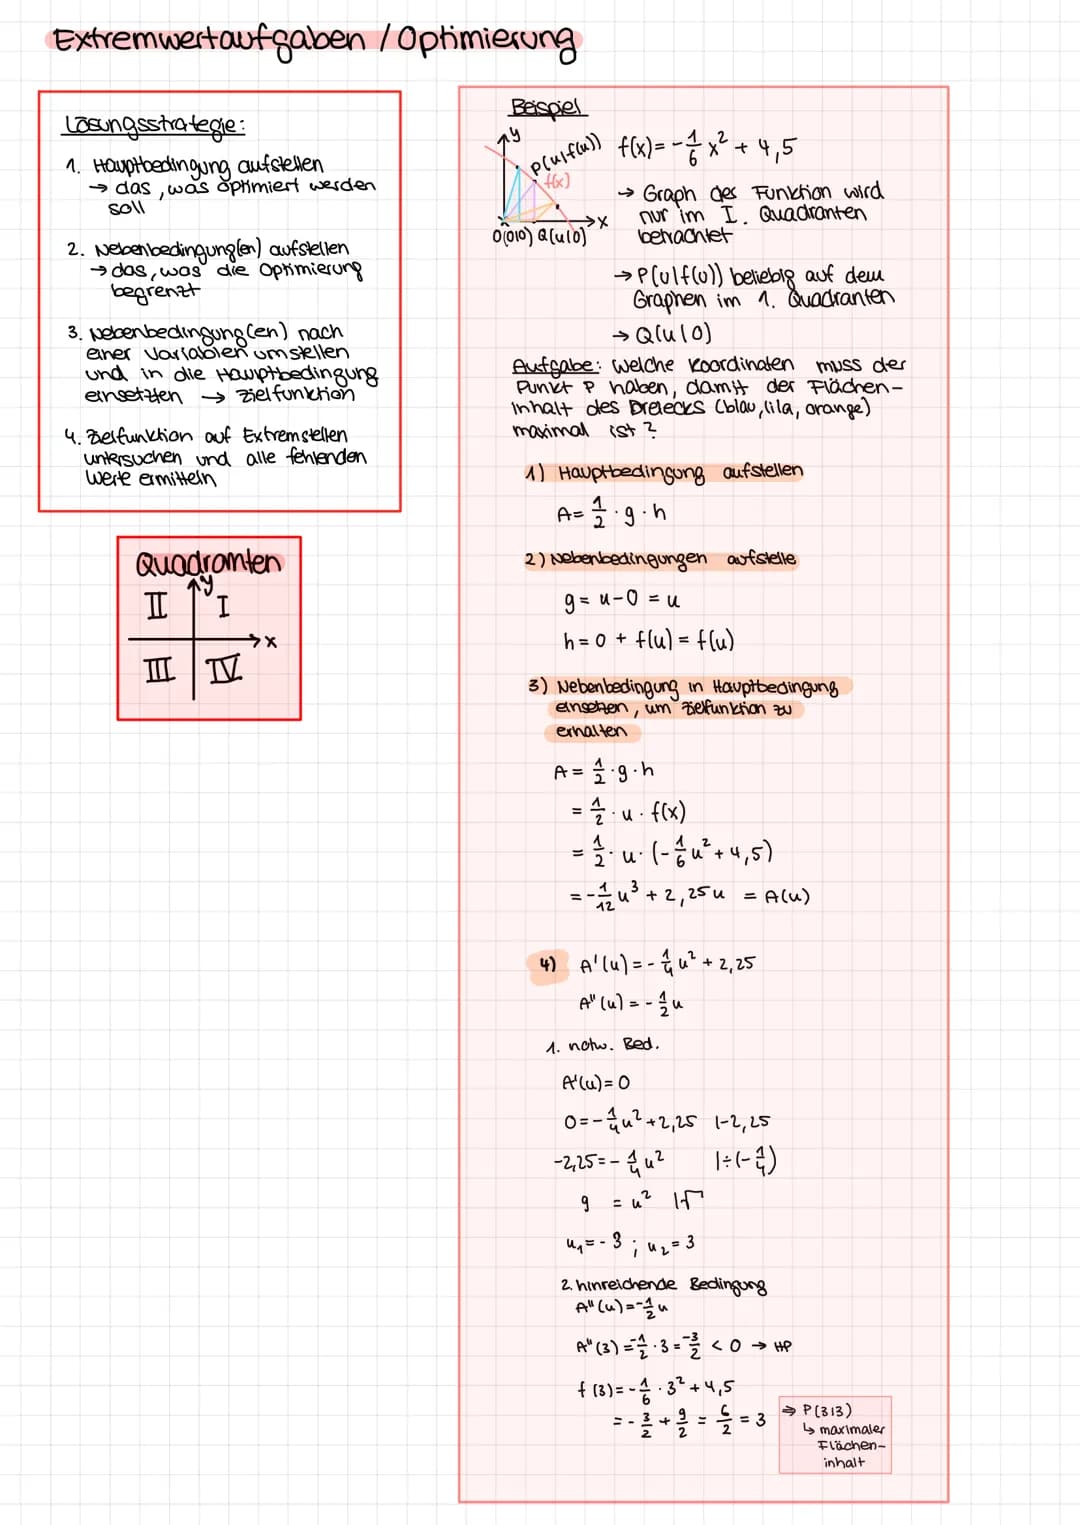 Extremwertaufgaben / Optimierung
Lösungsstrategie:
1. Hauptbedingung aufstellen
→ das, was optimiert werden
soll
2. Nebenbedingung(en) aufstellen
→ das, was die Optimierung
begrenzt
3. Nebenbedingung(en) nach
einer Variablen umstellen
und in die Hauptbedingung
einsetzten → Zielfunktion
4. Zielfunktion auf Extremstellen
untersuchen und alle fehlenden
Werte ermitteln
Quadranten
y
II I
x
III IV
Beispiel
y
P(u|f(u))
f(x)
x
O(0|0) Q(u|0)
f(x) = -1/6 x² + 4,5
→ Graph des Funktion wird
nur im I. Quadranten
betrachtet
→ P(u|f(u)) beliebig auf dem
Graphen im 1. Quadranten
→ Q(u|0)
Aufgabe: Welche Koordinaten muss der
Punkt P haben, damit der Flächen-
inhalt des Dreiecks (blau, lila, orange)
maximal ist?
1) Hauptbedingung aufstellen
A = 1/2 · g · h
2) Nebenbedingungen aufstelle
g = u - 0 = u
h = 0 + f(u) = f(u)
3) Nebenbedingung in Hauptbedingung
einsetzen, um Zielfunktion zu
erhalten
A = 1/2 · g · h
= 1/2 · u · f(x)
= 1/2 · u · (-1/6 u² + 4,5)
= -1/12 u³ + 2,25u = A(u)
4) A'(u) = -1/4 u² + 2,25
A''(u) = -1/2 u
1. notw. Bed.
A'(u) = 0
0 = -1/4 u² + 2,25 |-2,25
-2,25 = -1/4 u² |÷(-1/4)
9 = u² |√
u₁ = -3 ; u₂ = 3
2. hinreichende Bedingung
A''(u) = -1/2 u
A''(3) = -1/2 · 3 = -3/2 < 0 → HP
f(3) = -1/6 · 3² + 4,5
= -3/2 + 9/2 = 6/2 = 3
⇒ P(3|3)
↳ maximaler
Flächen-
inhalt